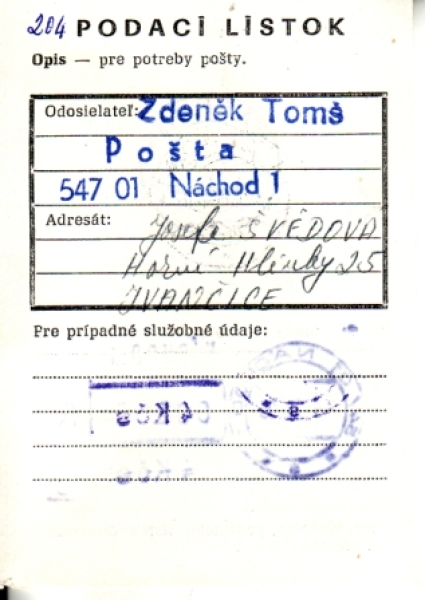 204 PODACÍ LÍSTOK
Opis — pre potreby pošty.
Odosielateľ: Zdeněk Tomš
Pošta
547 01 Náchod 1
Adresát:
Josefa ŠVÉDOVA
Horní Hlinky 25
IVANČICE
Pre prípadné služobné údaje: